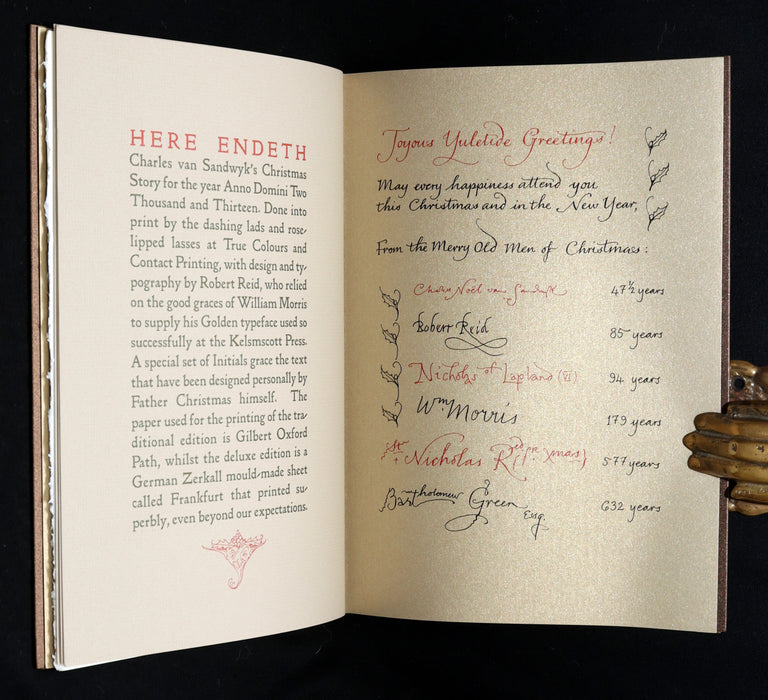 HERE ENDETH
Charles van Sandwyk's Christmas
Story for the year Anno Domini Two
Thousand and Thirteen. Done into
print by the dashing lads and rose-
lipped lasses at True Colours and
Contact Printing, with design and ty-
pography by Robert Reid, who relied
on the good graces of William Morris
to supply his Golden typeface used so
successfully at the Kelsmscott Press.
A special set of Initials grace the text
that have been designed personally by
Father Christmas himself. The
paper used for the printing of the tra-
ditional edition is Gilbert Oxford
Path, whilst the deluxe edition is a
German Zerkall mould-made sheet
called Frankfurt that printed su-
perbly, even beyond our expectations.
Joyous Yuletide Greetings!
May every happiness attend you
this Christmas and in the New Year,
From the Merry Old Men of Christmas:
Noël van Sandwyk 47½ years
Robert Reid 85 years
Nicholas of Lapland (VI) 94 years
Wm Morris 179 years
St Nicholas 577 years
Bartholomew Green Esq. 632 years